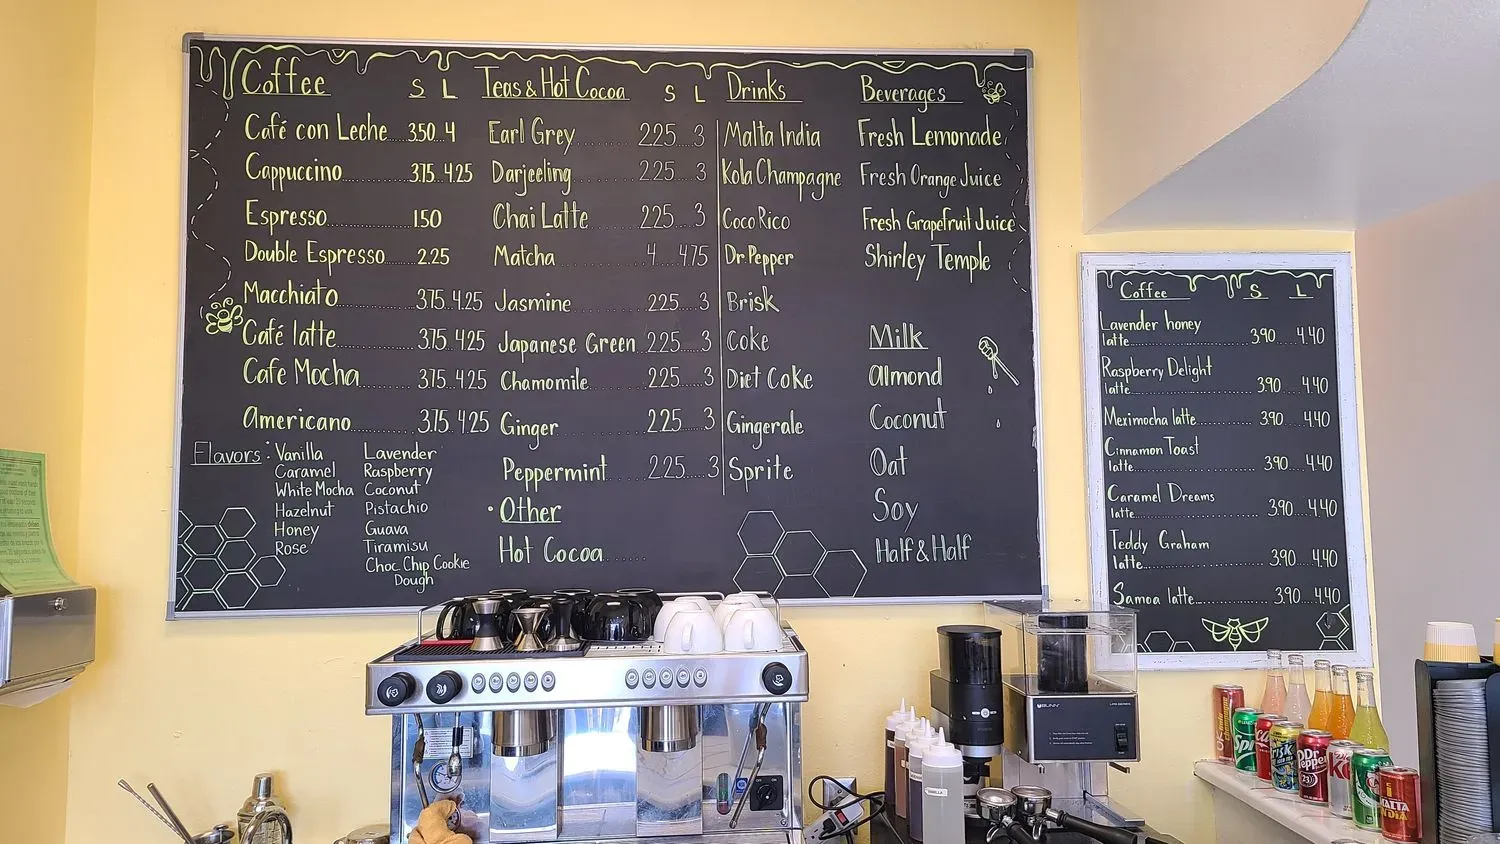 Coffee S L
Café con Leche 3.50 4
Cappuccino 3.75 4.25
Espresso 1.50
Double Espresso 2.25
Macchiato 3.75 4.25
Café latte 3.75 4.25
Cafe Mocha 3.75 4.25
Americano 3.75 4.25
Flavors:
Vanilla
Caramel
White Mocha
Hazelnut
Honey
Rose
Lavender
Raspberry
Coconut
Pistachio
Guava
Tiramisu
Choc. Chip Cookie
Dough
Teas & Hot Cocoa S L
Earl Grey 2.25 3
Darjeeling 2.25 3
Chai Latte 2.25 3
Matcha 4 4.75
Jasmine 2.25 3
Japanese Green 2.25 3
Chamomile 2.25 3
Ginger 2.25 3
Peppermint 2.25 3
• Other
Hot Cocoa
Drinks
Malta India
Kola Champagne
Coco Rico
Dr. Pepper
Brisk
Coke
Diet Coke
Gingerale
Sprite
Beverages
Fresh Lemonade
Fresh Orange Juice
Fresh Grapefruit Juice
Shirley Temple
Milk
Almond
Coconut
Oat
Soy
Half & Half
Coffee S L
Lavender honey
latte 3.90 4.40
Raspberry Delight
latte 3.90 4.40
Meximocha latte 3.90 4.40
Cinnamon Toast
latte 3.90 4.40
Caramel Dreams
latte 3.90 4.40
Teddy Graham
latte 3.90 4.40
Samoa latte 3.90 4.40
BUNN
VANILLA
Dr Pepper
23
MALTA
INDIA